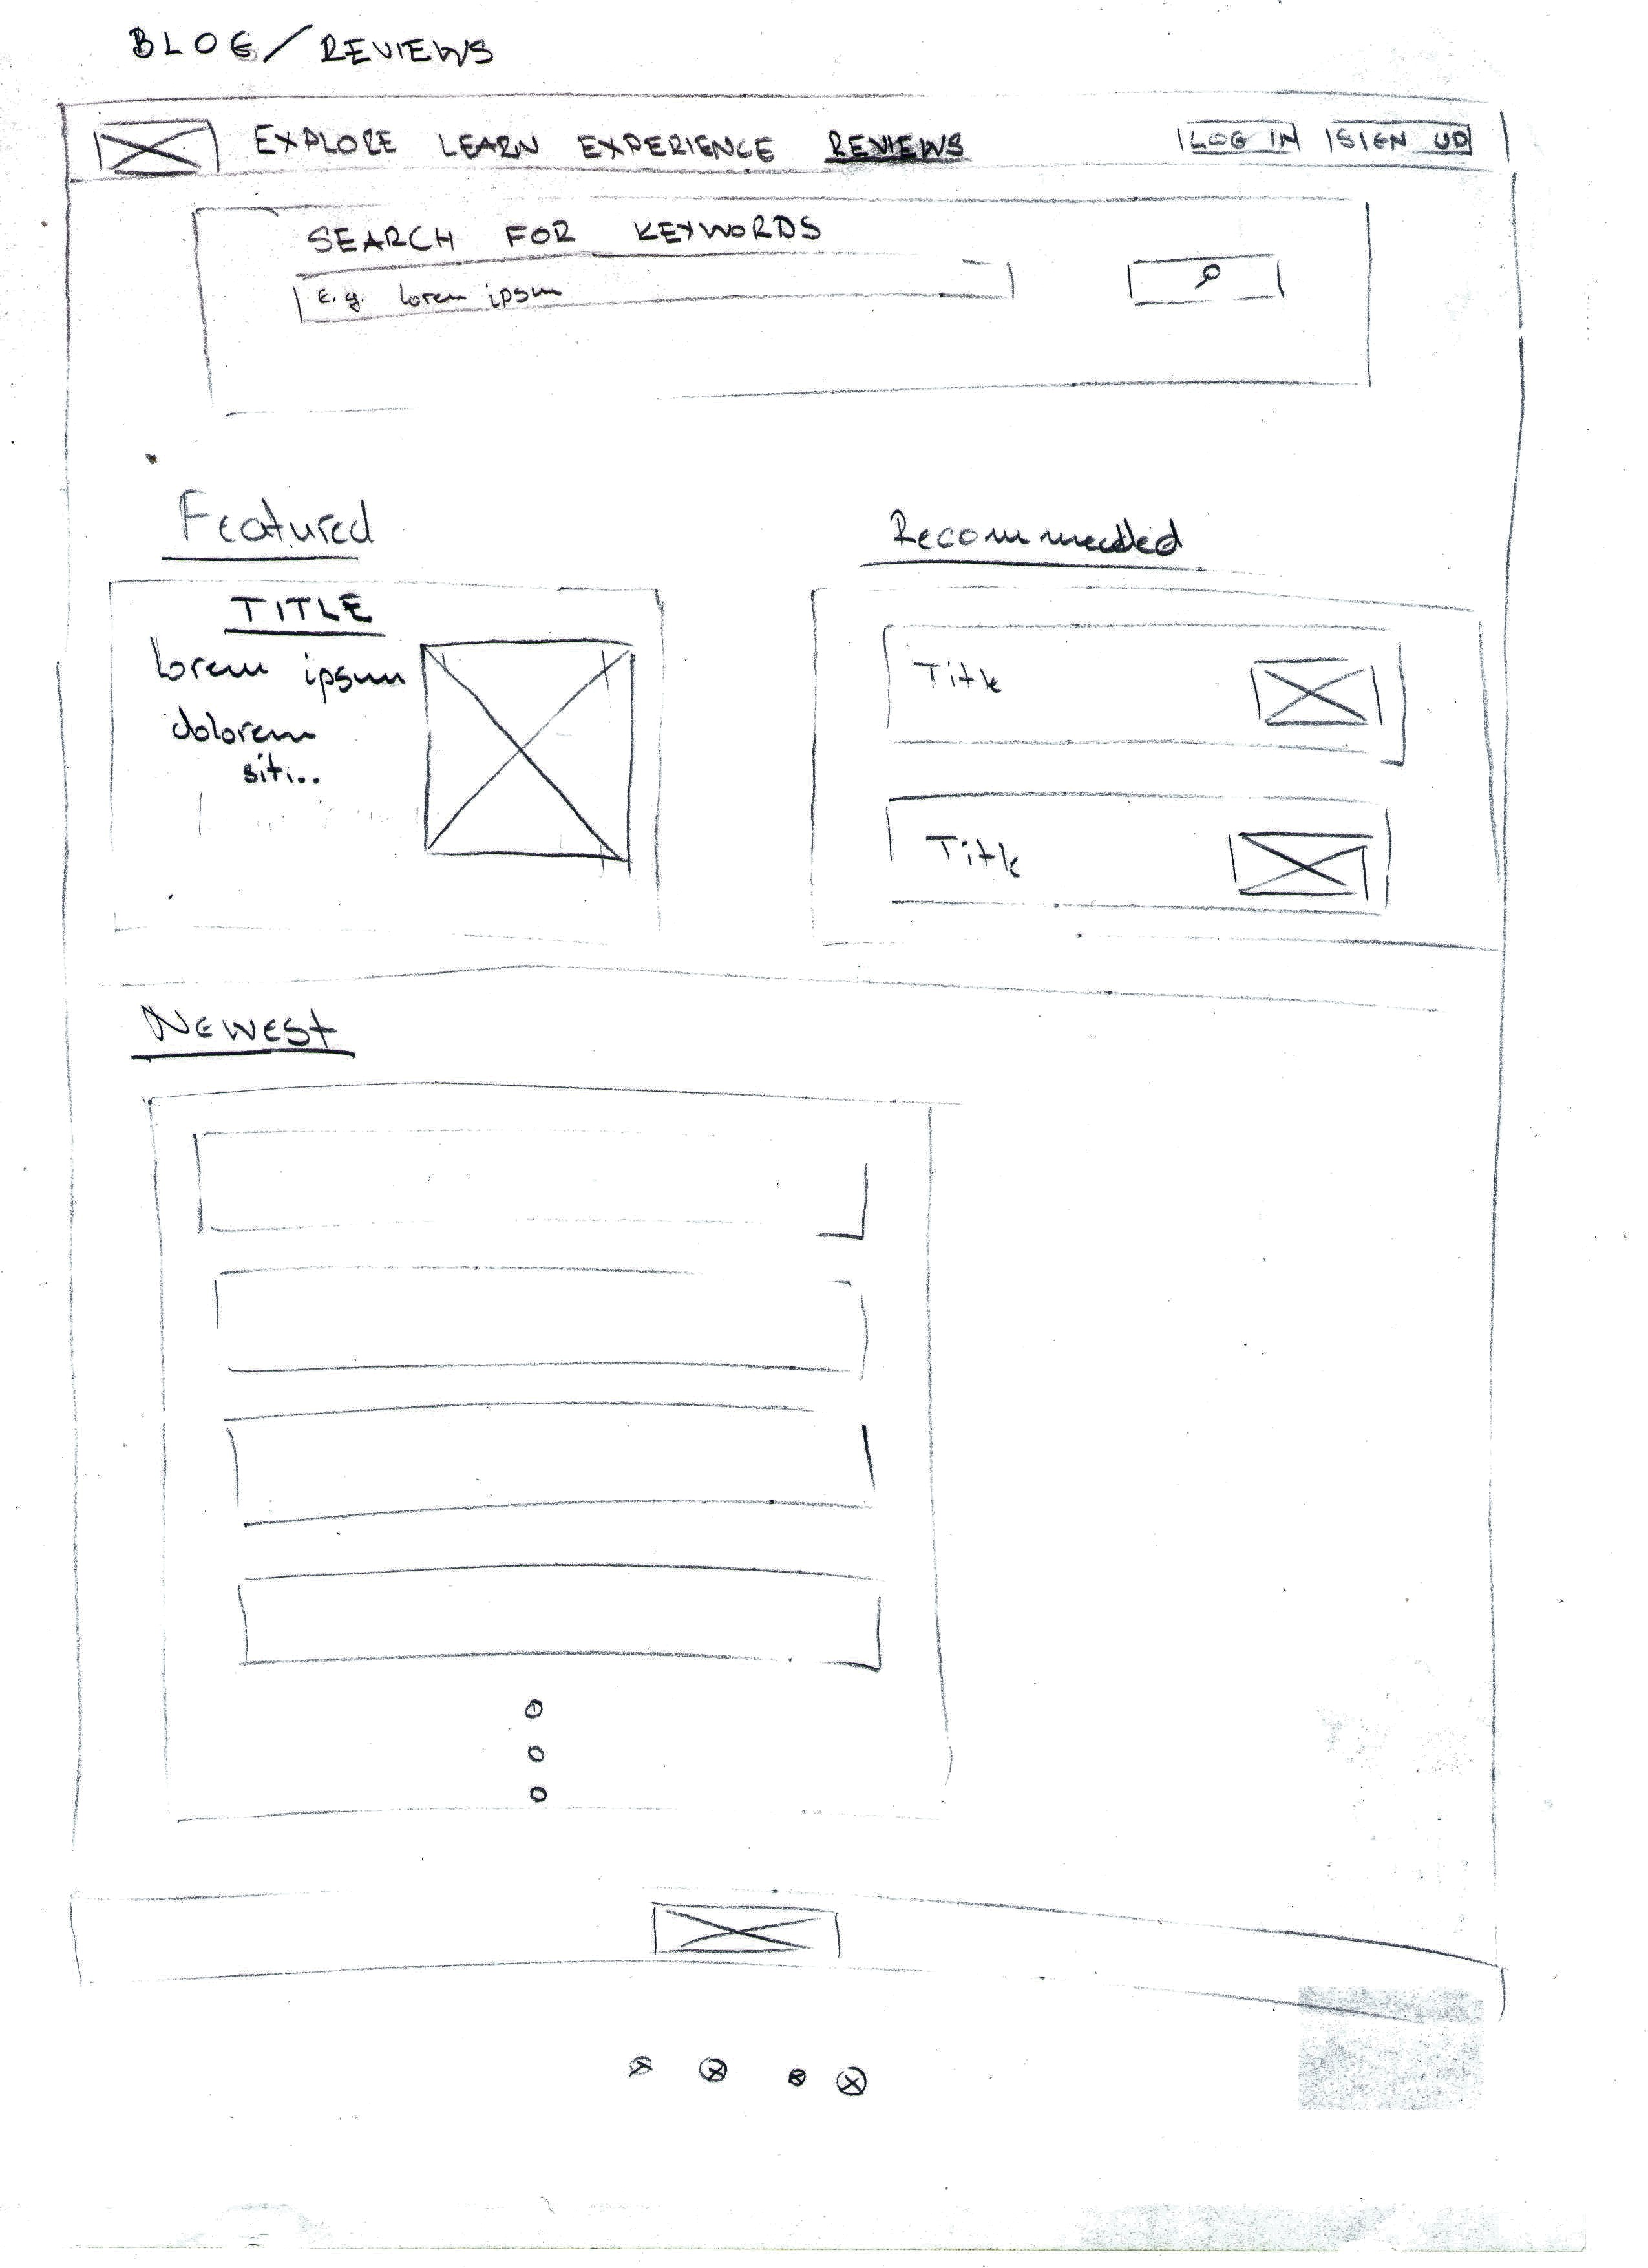 BLOG/REVIEWS
EXPLORE LEARN EXPERIENCE REVIEWS LOG IN SIGN UP
SEARCH FOR KEYWORDS
e.g. lorem ipsum
Featured
TITLE
lorem ipsum
dolorem
siti...
Recommended
Title
Title
Newest